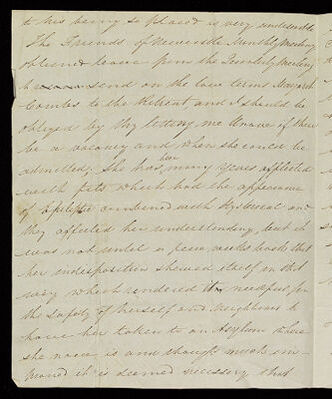 to his being so placed is very undesirable
The Friends of Newcastle Monthly Meeting
obtained leave from the Quarterly Meeting
to send on the low terms Margaret
Combes to the Retreat and I should be
obliged by thy letting me know if there
be a vacancy and when she could be
admitted. She has been many years afflicted
with fits which had the appearance
of Epileptic combined with Hysterical and
they affected her understanding, but it
was not until a few weeks back that
her indisposition shewed itself in that
way which rendered it needful for
the safety of herself and neighbours to
have her taken to an Asylum where
she now is and though much im-
proved it is deemed necessary that